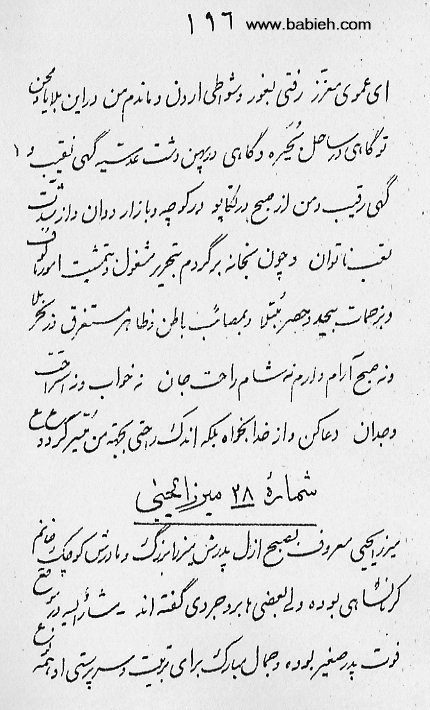 ۱۹۶ www.babieh.com
ای عموی معزّز رفتی بغور و شواطی اردن و ماندم من در این بلایا و محن
تو گاهی در ساحل بُحَیره و گاهی در پهن دشت عدسیه گهی نقیب و ۱
گهی رقیب و من از صبح در تکاپو در کوچه و بازار دوان و از شدّت
تعب ناتوان و چون بخانه برگردم بتحریر مشغول و بتمشیت امور مألوف
و بزحمات بیحد و حصر مُبتلا و بمصائب باطن و ظاهر مستغرق در بحر بلا
و نه صبح آرام دارم نه شام راحت جان نه خواب و نه استراحت
وجدان دعا کن و از خدا بخواه بلکه اندک راحتی بجهة من میسّر گردد ع ع
شمارهٔ ۲۸ میرزا یحیی
میرزا یحیی معروف بصبح ازل پدرش میرزا بزرگ و مادرش کوچک خانم
کرمانشاهی بوده ولی بعضی‌ها بروجردی گفته‌اند مشارٌالیه در موقع
فوت پدر صغیر بوده و جمال مبارک برای تربیت و سرپرستی او همه نوع